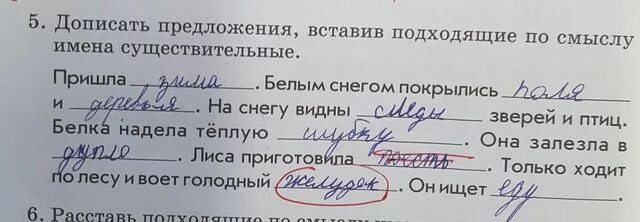 5. Дописать предложения, вставив подходящие по смыслу
имена существительные.
Пришла зима. Белым снегом покрылись поля
и деревья. На снегу видны следы зверей и птиц.
Белка надела тёплую шубку. Она залезла в
дупло. Лиса приготовила поесть. Только ходит
по лесу и воет голодный желудок. Он ищет еду.
6. Расставь подходящие по смыслу